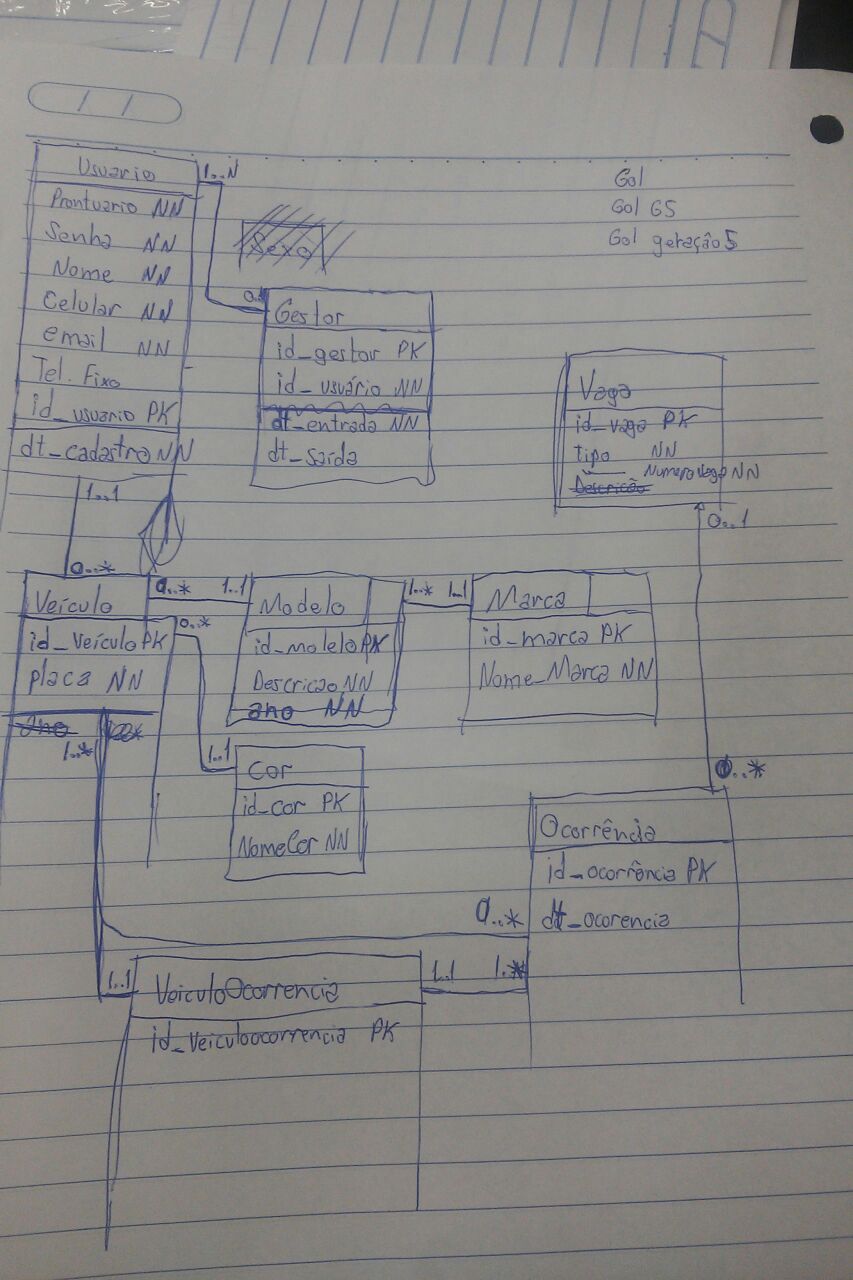 / /
Usuario
Prontuario NN
Senha NN
Nome NN
Celular NN
email NN
Tel. Fixo
id_usuario PK
dt_cadastro NN
1..N
Sexo
Gestor
id_gestor PK
id_usuário NN
dt-entrada NN
dt-saída
Gol
Gol G5
Gol geração 5
Vaga
id_vaga PK
tipo NN
Descrição Numerovaga NN
0..1
1..1
0..*
Veículo
id_veículo PK
placa NN
ano
1..*
0..*
1..1
Modelo
id_molelo PK
Descricao NN
ano NN
1..*
1..1
Marca
id_marca PK
Nome_Marca NN
0..*
1..1
Cor
id_cor PK
NomeCor NN
0..*
Ocorrência
id_ocorrência PK
dt_ocorencia
0..*
1..1
VeiculoOcorrencia
id_veiculoocorrencia PK
1..1
1..*